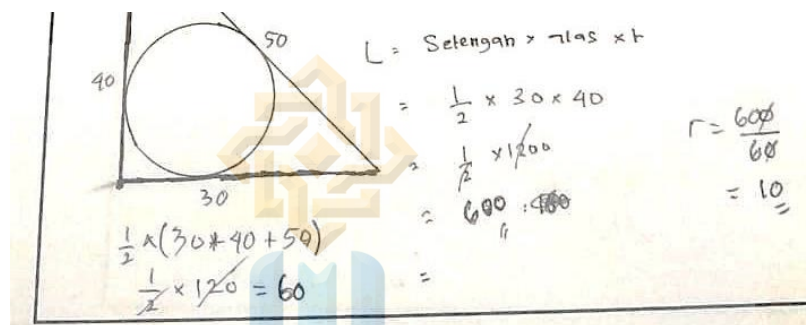 40
50
30
L = Setengah x alas x t
= 1/2 x 30 x 40
= 1/2 x 1200
= 600
=
1/2 x (30 + 40 + 50)
1/2 x 120 = 60
r = 600/60
= 10